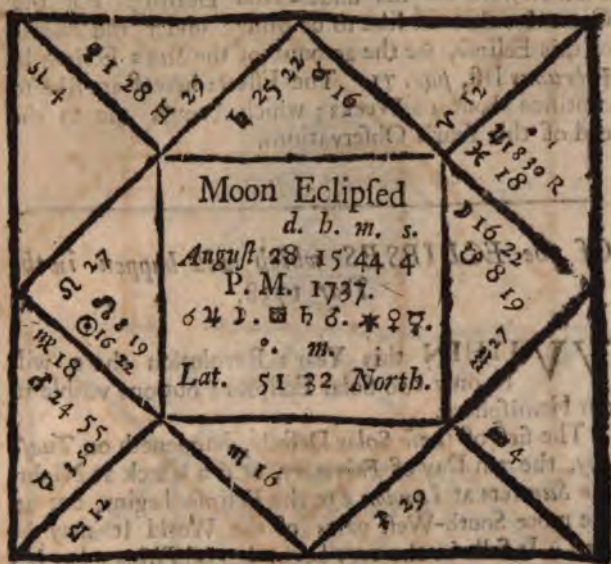 ♋ 4
♀ 1 28
♊ 29
♄ 25 22
♉ 16
♈ 12
♃ 18 30 R
♓ 18
☽ 16 22
☋ 8 19
♒ 27
♑ 4
♐ 29
♏ 16
♎ 12
☿ 1 50
♂ 24 55
♍ 18
☉ 16 22
☊ 8 19
♌ 27
Moon Eclipſed
d. h. m. s.
Auguſt 28 15 44 4
P. M. 1737.
☌ ♃ ☽. □ ♄ ♂. ⚹ ♀ ☿.
°. m.
Lat. 51 32 North.